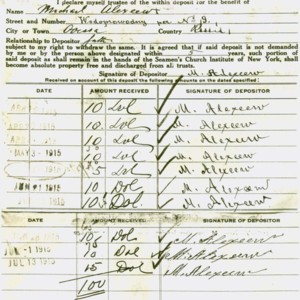 I declare myself trustee of the within deposit for the benefit of
Name Michael Alexeew
Address per No 9.
City or Town Odessa Country Russia
Relationship to Depositor
subject to my right to withdraw the same. It is agreed if said deposit is not demanded
by me or by the person above designated within 5 years, such portion of
said deposit as shall remain in the hands of the Seamen's Church Institute of New York, shall
become absolute property free and discharged from all trusts.
Signature of Depositor M. Alexeew
Received on account of this deposit the following amounts on the dates specified.
AMOUNT RECEIVED SIGNATURE OF DEPOSITOR
10 Dol M. Alexeew
10 Dol M. Alexeew
10 Dol M. Alexeew
MAY 3- 1915 10 Dol M. Alexeew
5 Dol M. Alexeew
JUN 1915 10 Dol M. Alexeew
10 Dol. M. Alexeew
DATE AMOUNT RECEIVED SIGNATURE OF DEPOSITOR
10 Dol M. Alexeew
JUL -1 1915 10 Dol M. Alexeew
JUL 13 1915 15 Dol M. Alexeew
100